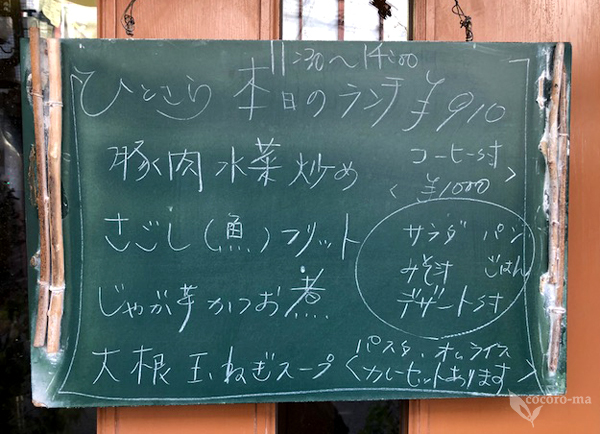 11:30〜14:00
ひとさら 本日のランチ ¥910
豚肉 水菜 炒め
コーヒー付
<¥1000>
さごし(魚)フリット
サラダ パン
みそ汁 ごはん
デザート付
じゃが芋かつお煮
大根 玉ねぎスープ
パスタ、オムライス
<カレーセットあります>
cocoro-ma